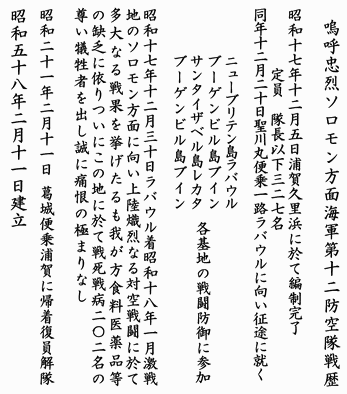 嗚呼忠烈ソロモン方面海軍第十二防空隊戦歴
昭和十七年十二月五日浦賀久里浜に於て編制完了
定員 隊長以下三二七名
同年十二月二十日聖川丸便乗一路ラバウルに向い征途に就く
ニューブリテン島ラバウル
ブーゲンビル島ブイン
サンタイザベル島レカタ
ブーゲンビル島ブイン
各基地の戦闘防御に参加
昭和十七年十二月三十日ラバウル着昭和十八年一月激戦
地のソロモン方面に向い上陸熾烈なる対空戦闘に於て
多大なる戦果を挙げたるも我が方食料医薬品等
の缺乏に依りついにこの地に於て戦死戦病二〇二名の
尊い犠牲者を出し誠に痛恨の極まりなし
昭和二十一年二月十一日 葛城便乗浦賀に帰着復員解隊
昭和五十八年二月十一日建立